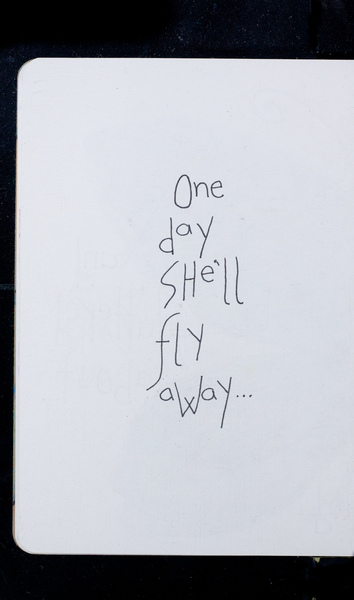 One
day
SHe'll
fly
away...